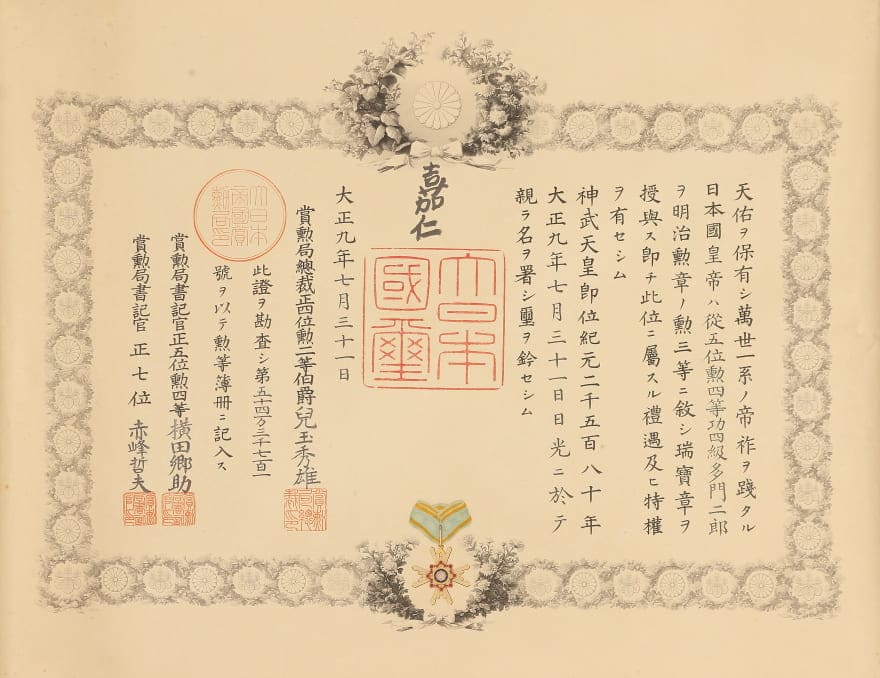 天佑ヲ保有シ萬世一系ノ帝祚ヲ踐タル
日本國皇帝ハ從五位勲四等功四級多門二郎
ヲ明治勲章ノ勲三等ニ敘シ瑞寶章ヲ
授與ス即チ此位ニ屬スル禮遇及ヒ特權
ヲ有セシム
神武天皇即位紀元二千五百八十年
大正九年七月三十一日日光ニ於テ
親ラ名ヲ署シ璽ヲ鈐セシム
嘉仁
大日本
國璽
大正九年七月三十一日
賞勲局總裁正四位勲二等伯爵兒玉秀雄
此證ヲ勘査シ第五十四万三千七百一
號ヲ以テ勲等簿冊ニ記入ス
大日本
帝國賞
勲局印
賞勲局書記官正五位勲四等横田郷助
賞勲局書記官 正七位 赤峰哲夫